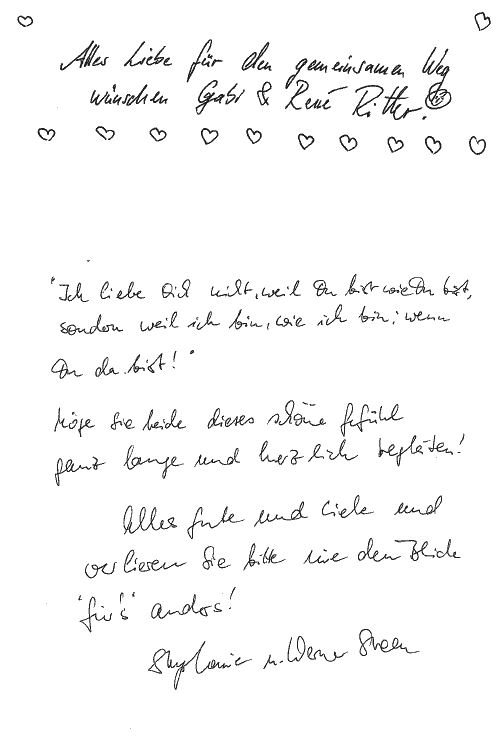 Alles Liebe für den gemeinsamen Weg
wünschen Gabi & René Ritter.
"Ich liebe Dich nicht, weil Du bist wie Du bist,
sondern weil ich bin, wie ich bin, wenn
Du da bist!"
Möge Sie beide dieses schöne Gefühl
ganz lange und herzlich begleiten!
Alles Gute und Liebe und
verlieren Sie bitte nie den Blick
"für's" andere!
Stephanie u. Werner